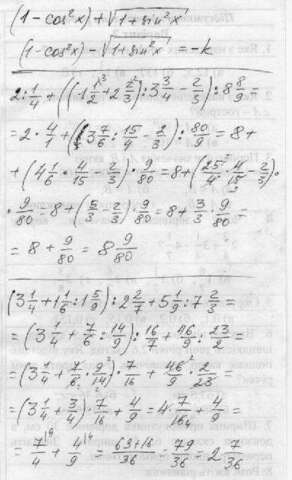 (1 - cos²x) + √1 + sin²x
(1 - cos²x) - √1 + sin²x = -k
2 : 1/4 + ((-1 1/2 + 2 2/3) : 3 3/4 - 2/3) : 8 8/9 =
= 2 · 4/1 + (3 7/6 : 15/4 - 2/3) : 80/9 = 8 +
+ (4 1/6 · 4/15 - 2/3) · 9/80 = 8 + (25/4 · 4/15 - 2/3) ·
· 9/80 = 8 + (5/3 - 2/3) · 9/80 = 8 + 3/3 · 9/80 =
= 8 + 9/80 = 8 9/80
(3 1/4 + 1 1/6 : 1 5/9) : 2 2/7 + 5 1/9 : 7 2/3 =
= (3 1/4 + 7/6 : 14/9) : 16/7 + 46/9 : 23/2 =
= (3 1/4 + 7/6 · 9/14) · 7/16 + 46/9 · 2/23 =
= (3 1/4 + 3/4) · 7/16 + 4/9 = 4 · 7/16 + 4/9 =
= 7/4 + 4/9 = 63+16/36 = 79/36 = 2 7/36